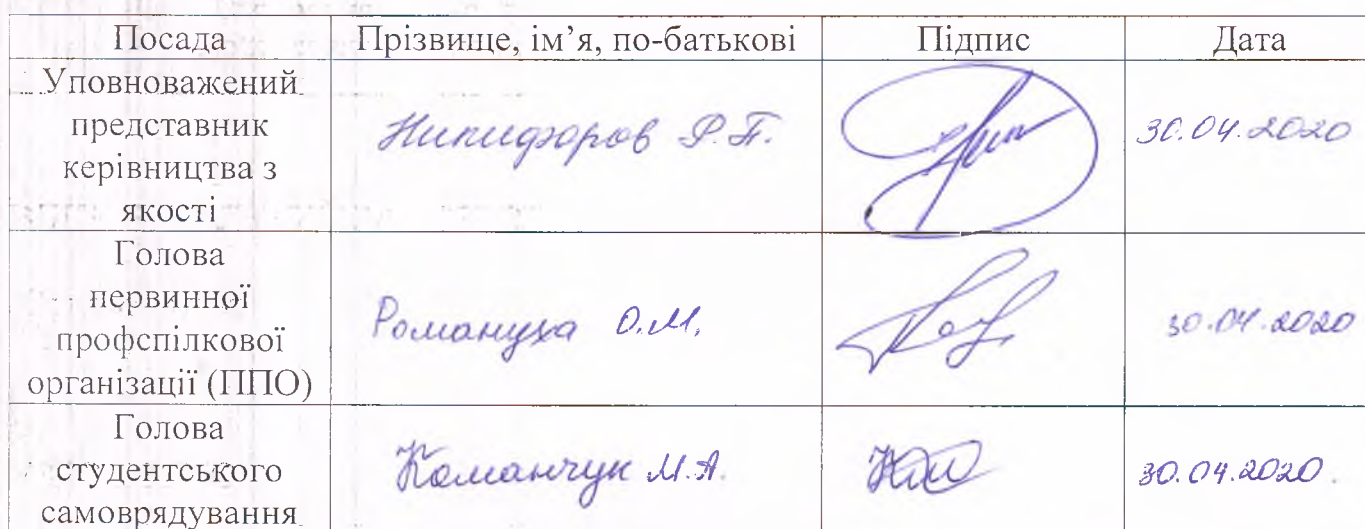 Посада Прізвище, ім’я, по-батькові Підпис Дата
Уповноважений
представник
керівництва з
якості
Никифоров Р.П. 30.04.2020
Голова
первинної
профспілкової
організації (ППО)
Романуха О.М. 30.04.2020
Голова
студентського
самоврядування
Команчук М.А. 30.04.2020.